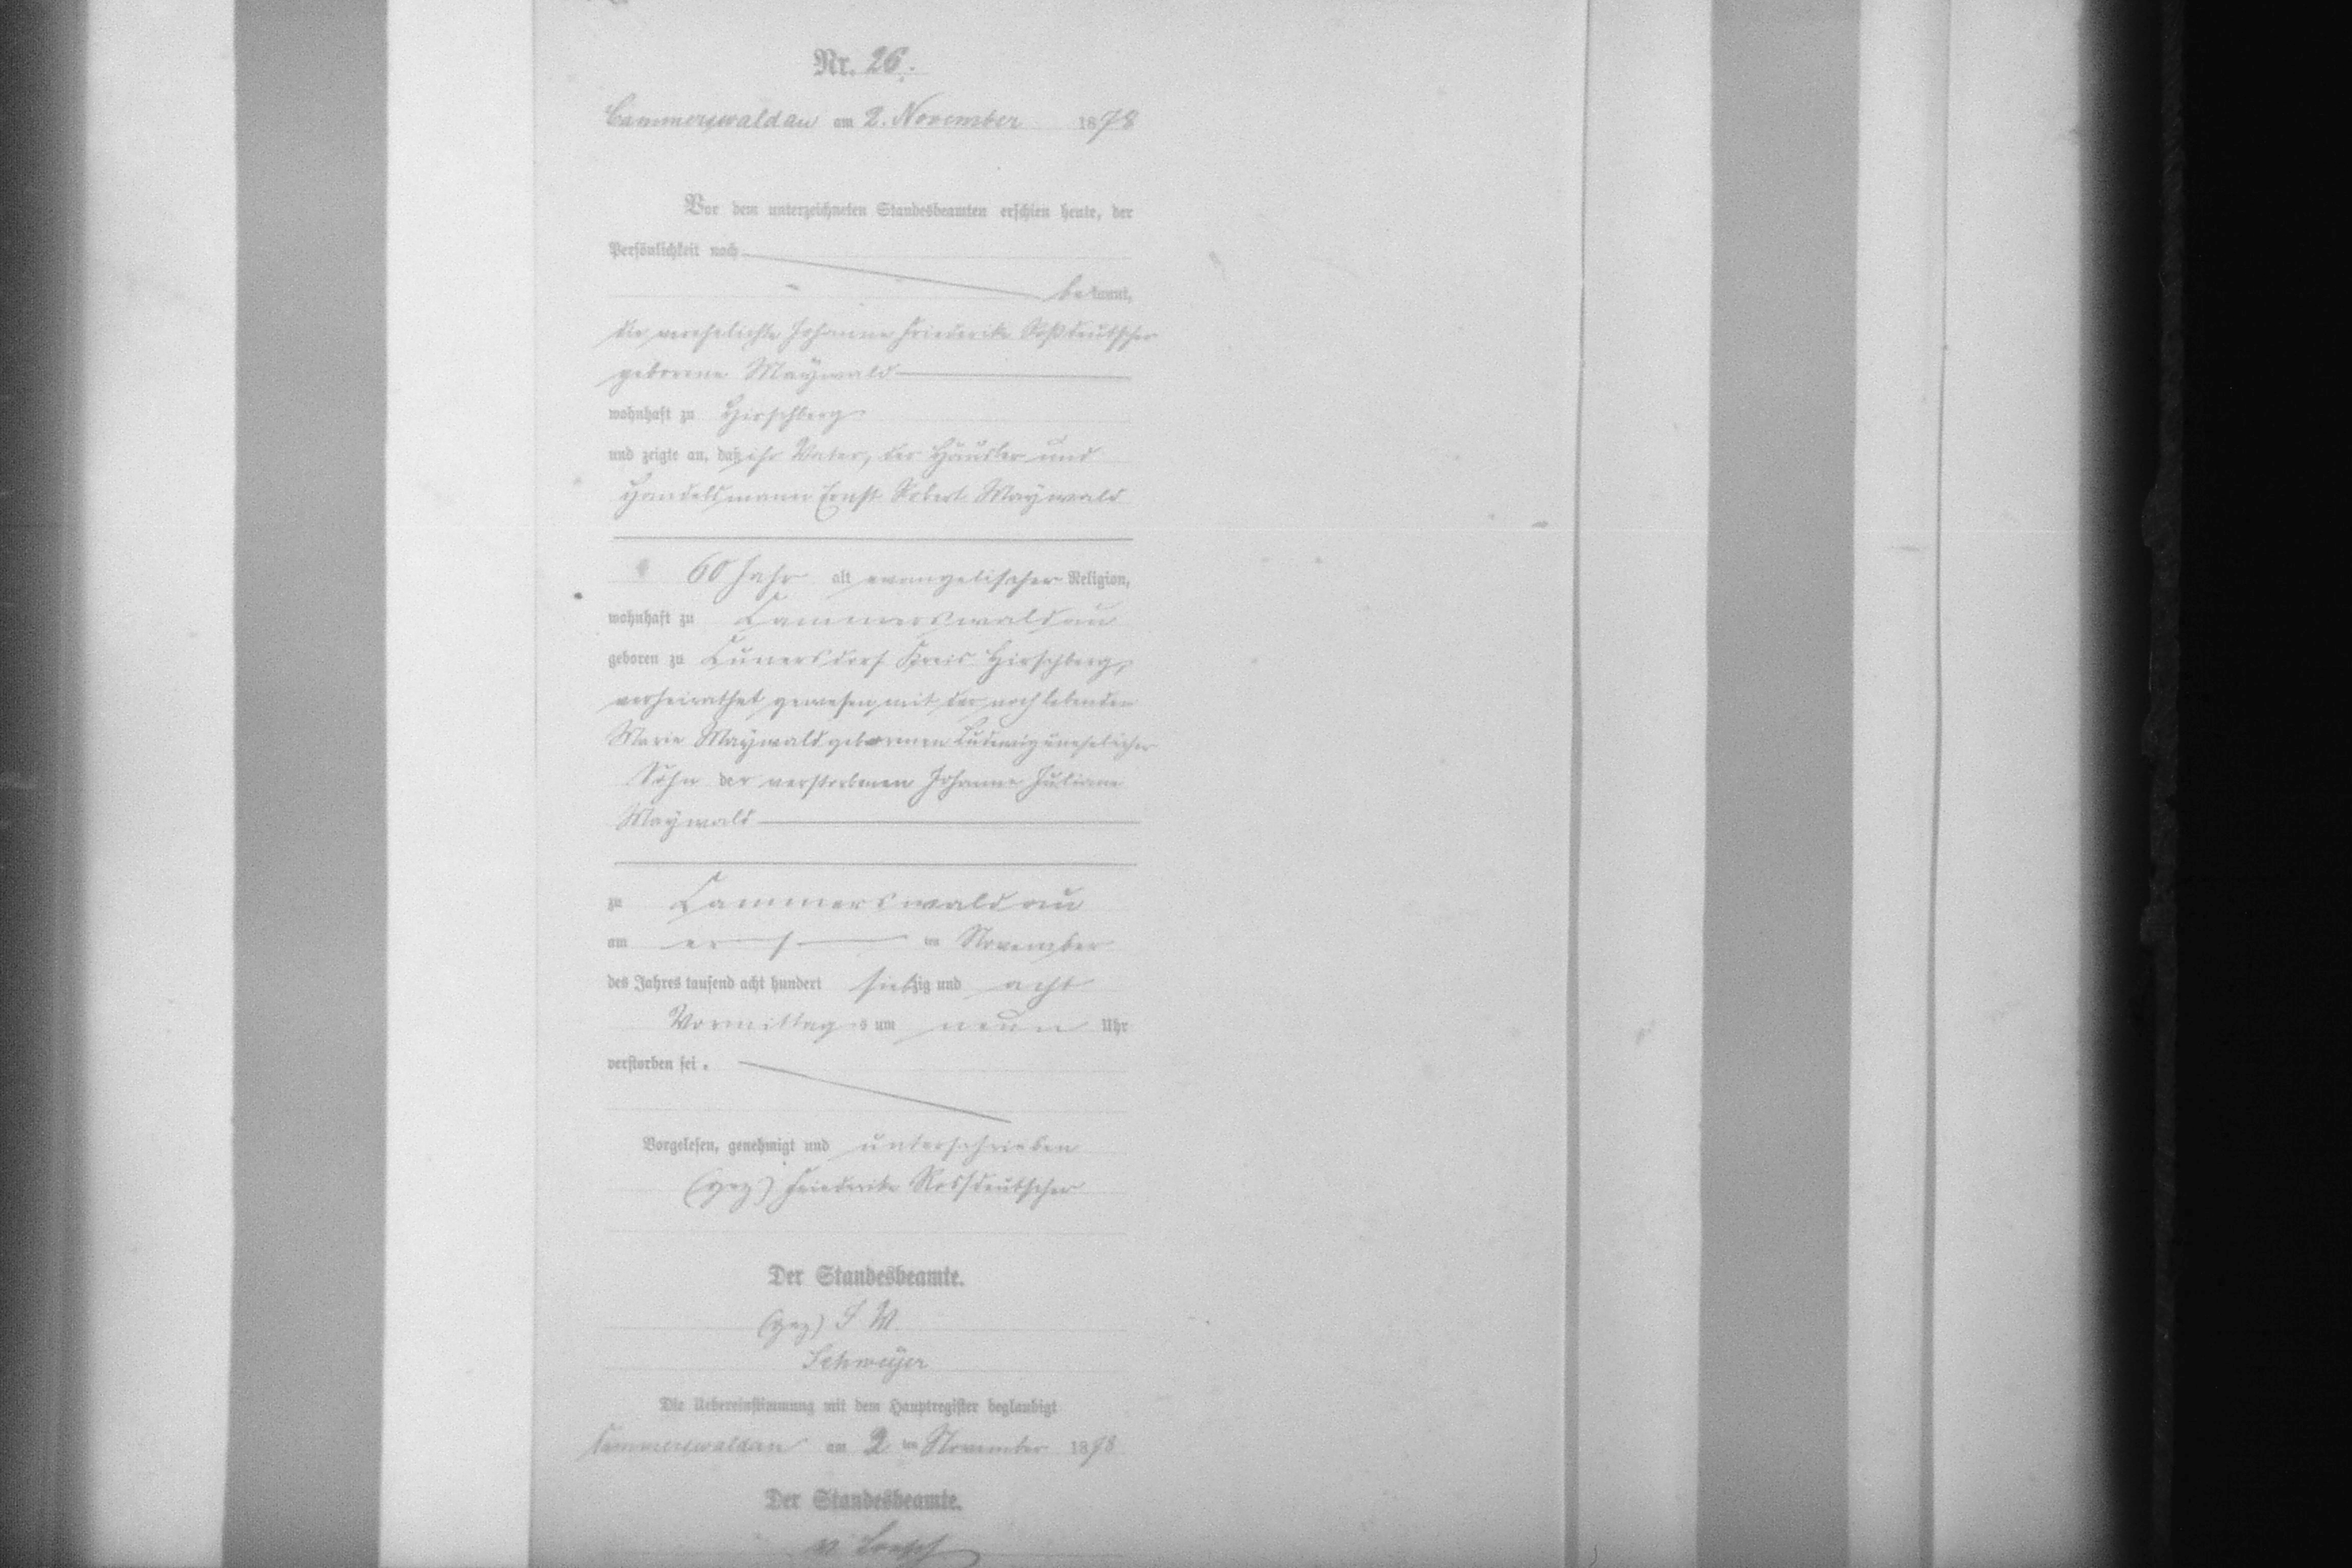 Nr. 26.
Cammerswaldau am 2. November 1878
Vor dem unterzeichneten Standesbeamten erschien heute, der
Persönlichkeit nach
bekannt,
die verehelichte Johanne Friederike Roßdeutscher
geborene Maywald
wohnhaft zu Hirschberg
und zeigte an, daß ihr Vater, der Häusler und
Handelsmann Ernst Robert Maywald
60 Jahr alt evangelischer Religion,
wohnhaft zu Cammerswaldau
geboren zu Cunersdorf Kreis Hirschberg,
verheirathet gewesen mit der noch lebenden
Marie Maywald geborenen Ludewig unehelicher
Sohn der verstorbenen Johanne Juliane
Maywald
zu Cammerswaldau
am ersten November
des Jahres tausend acht hundert siebzig und acht
Vormittags um neun Uhr
verstorben sei.
Vorgelesen, genehmigt und unterschrieben
(gez) Friederike Rossdeutscher
Der Standesbeamte.
(gez) I W
Schweijer
Die Uebereinstimmung mit dem Hauptregister beglaubigt
Cammerswaldau am 2 ten November 1878
Der Standesbeamte.